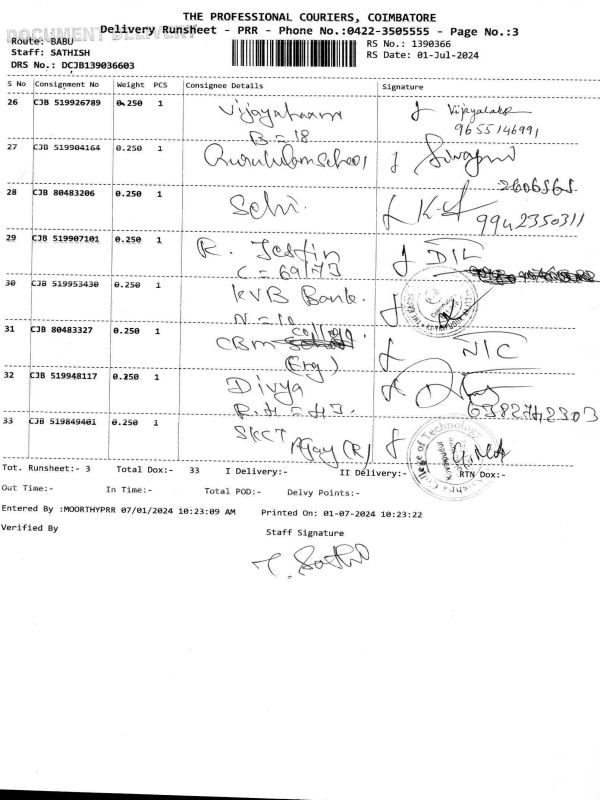 THE PROFESSIONAL COURIERS, COIMBATORE
DOCUMENT DELIVERY
Delivery Runsheet - PRR - Phone No.:0422-3505555 - Page No.:3
Route: BABU
RS No.: 1390366
Staff: SATHISH
RS Date: 01-Jul-2024
DRS No.: DCJB139036603
S No Consignment No Weight PCS Consignee Details Signature
26 CJB 519926789 0.250 1
B=18
9655146991
27 CJB 519904164 0.250 1
28 CJB 80483206 0.250 1 Selvi.
9942350311
29 CJB 519907101 0.250 1 R. Jestin
C=69/73
30 CJB 519953430 0.250 1 KVB Bank.
N=10
31 CJB 80483327 0.250 1 CBM College
(Erg) NIC
32 CJB 519948117 0.250 1 Divya
R.H=H3. 6382742303
33 CJB 519849401 0.250 1 SKCT Ajay (R)
College of Technology
Tot. Runsheet:- 3 Total Dox:- 33 I Delivery:- II Delivery:- RTN Dox:-
Out Time:- In Time:- Total POD:- Delvy Points:-
Entered By :MOORTHYPRR 07/01/2024 10:23:09 AM Printed On: 01-07-2024 10:23:22
Verified By Staff Signature